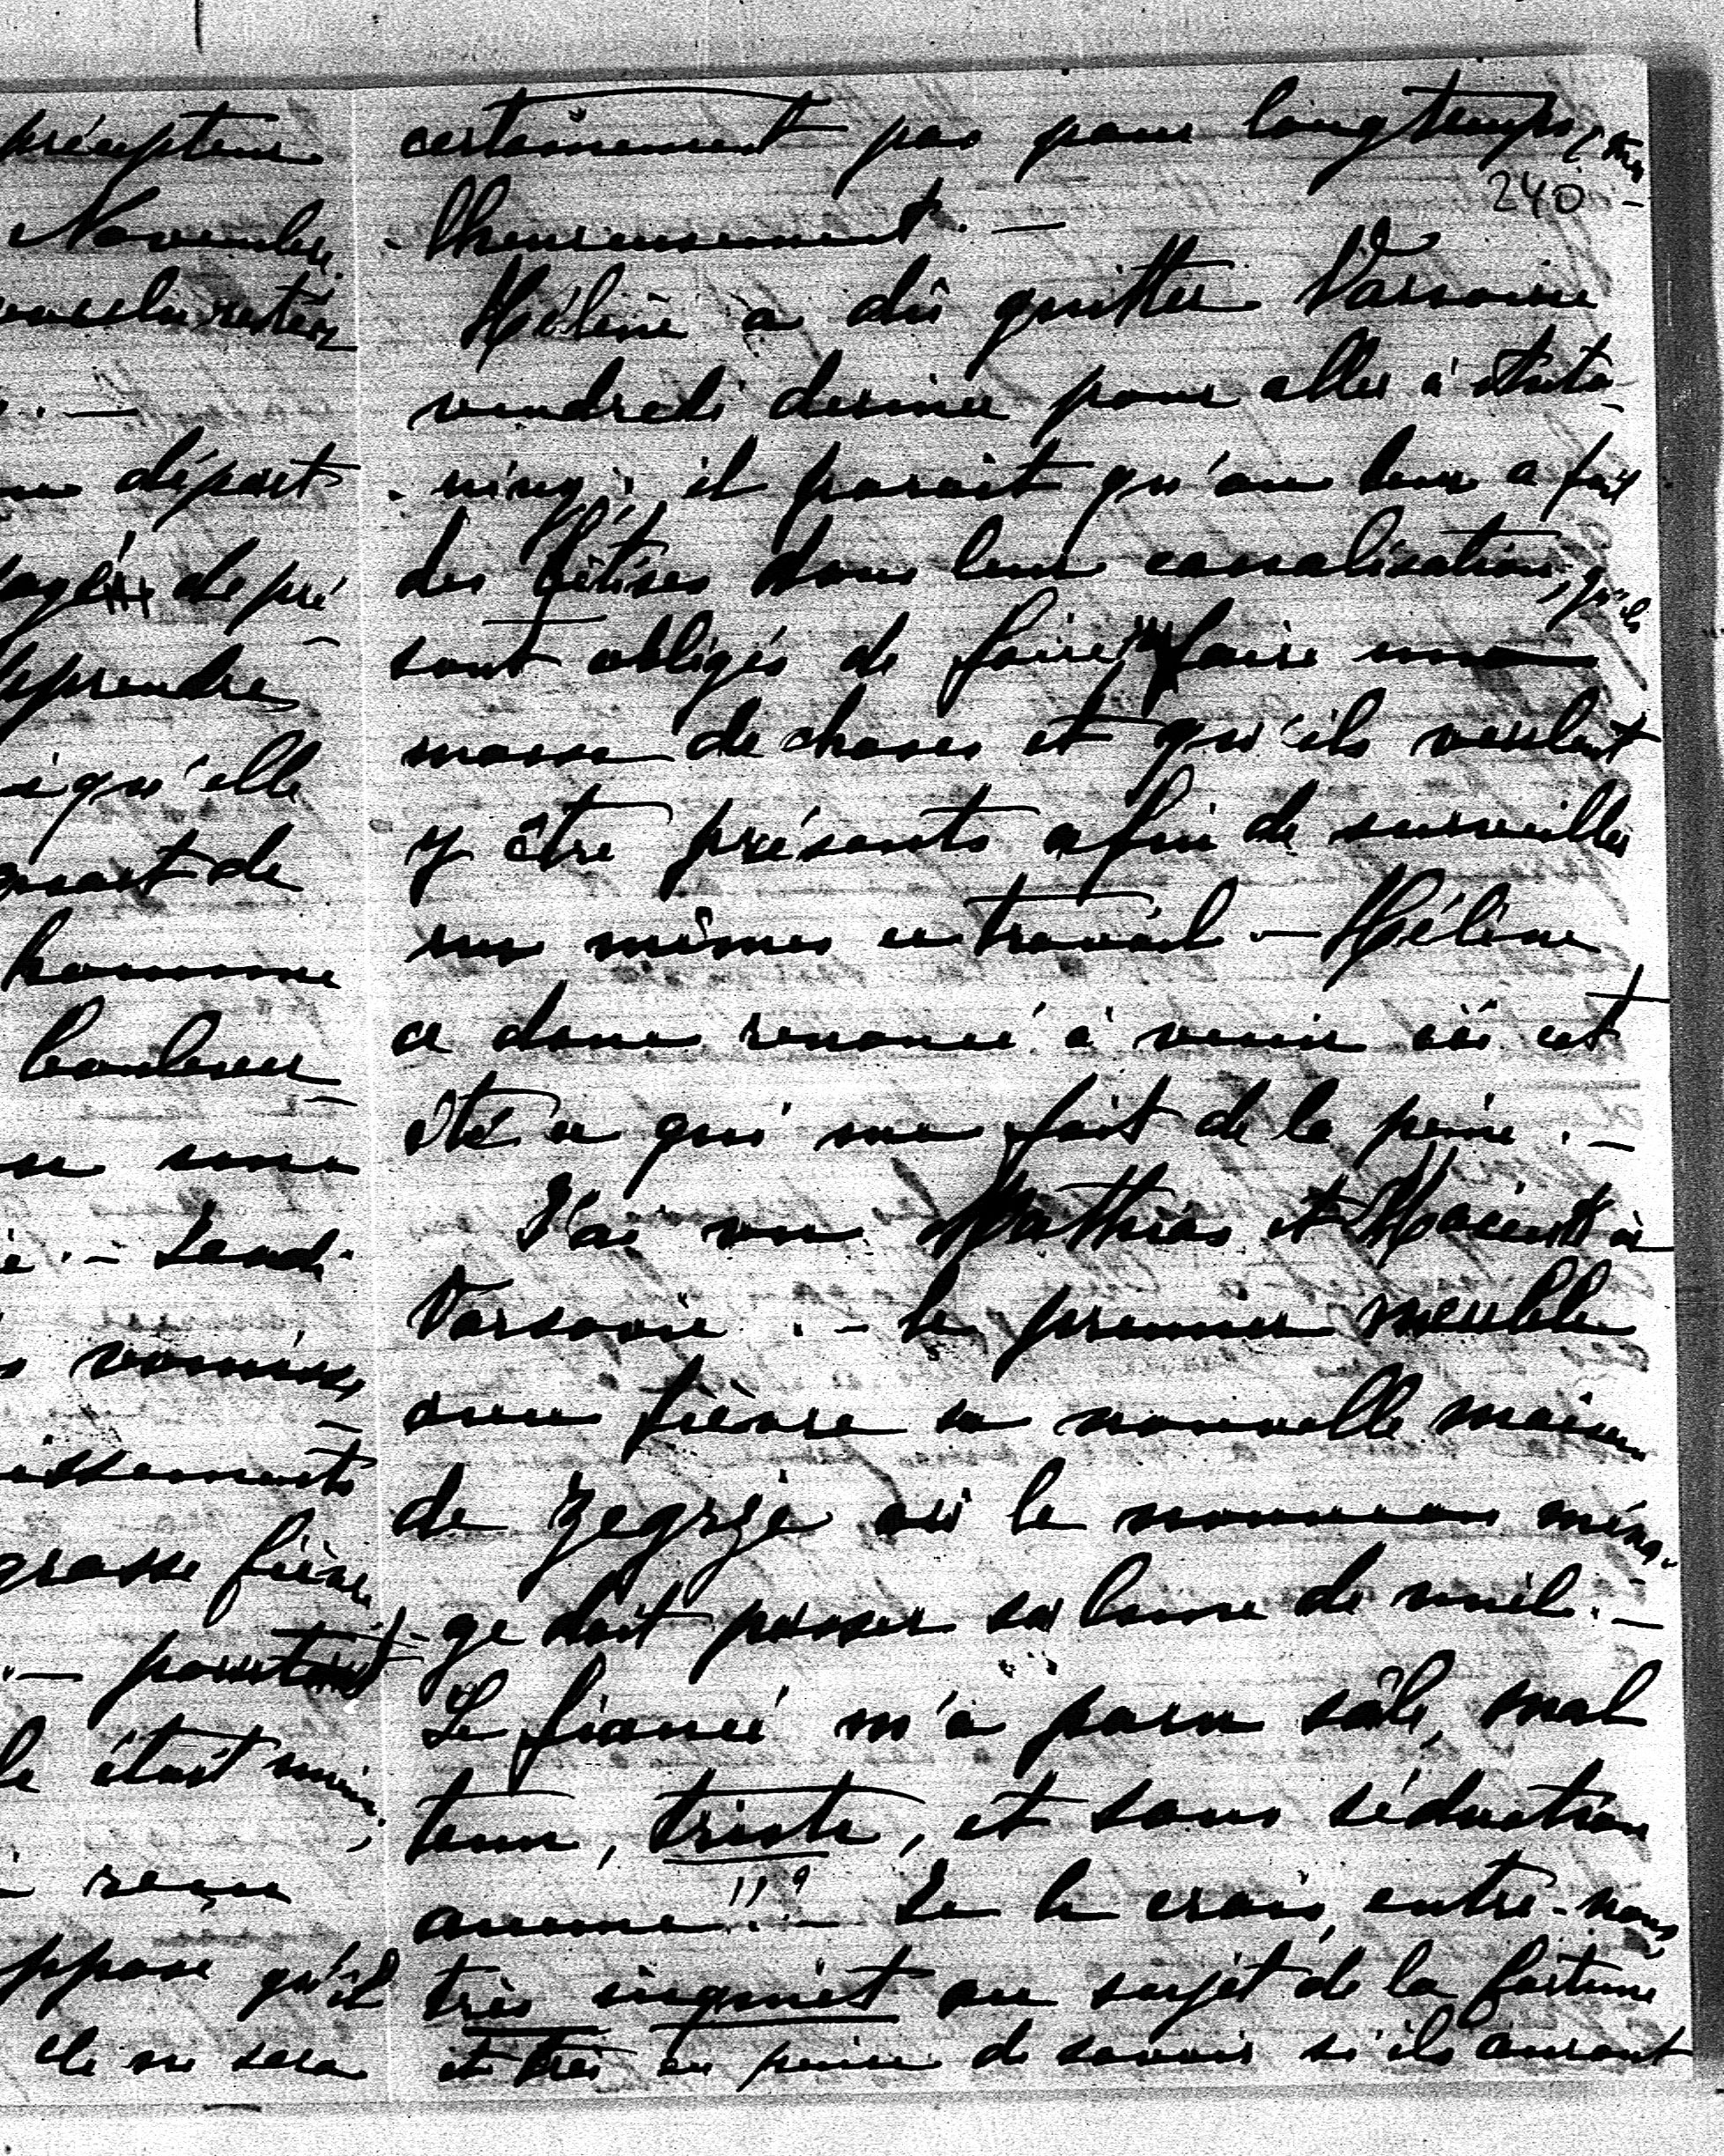 précepteur
Novembre
rester
. —
départ
de pré
prendre
qu'elle
de
homme
bonheur
sera
. — Land
vomisse
issements
grasse fièvre
. — pourtant
le était mieux ;
reçu
ppose qu'il
elle ne sera
certainement pas pour longtemps, ma
240
- lheureusement. —
Hélène a dû quitter Varsovie
vendredi dernier pour aller à Anto
- niny ; il parait qu'on leur a fait
des bêtises dans leur canalisation, qu'ils
sont obligés de faire faire une
masse de choses et qu'ils veulent
y être présents afin de surveiller
eux mêmes ce travail — Hélène
a donc renoncé à venir ici cet
été ce qui me fait de la peine. —
J'ai vu Mathias et à
Varsovie. — Le premier meuble
avec fièvre sa nouvelle maison
de Zegrze où le nouveau ména-
ge doit passer sa lune de miel. —
Le fiancé m'a paru sâle, mal
tenu, triste, et sans séduction
aucune !!? — Je le crois, entre-nous
très inquiet au sujet de la fortune
et très en peine de savoir si ils auront